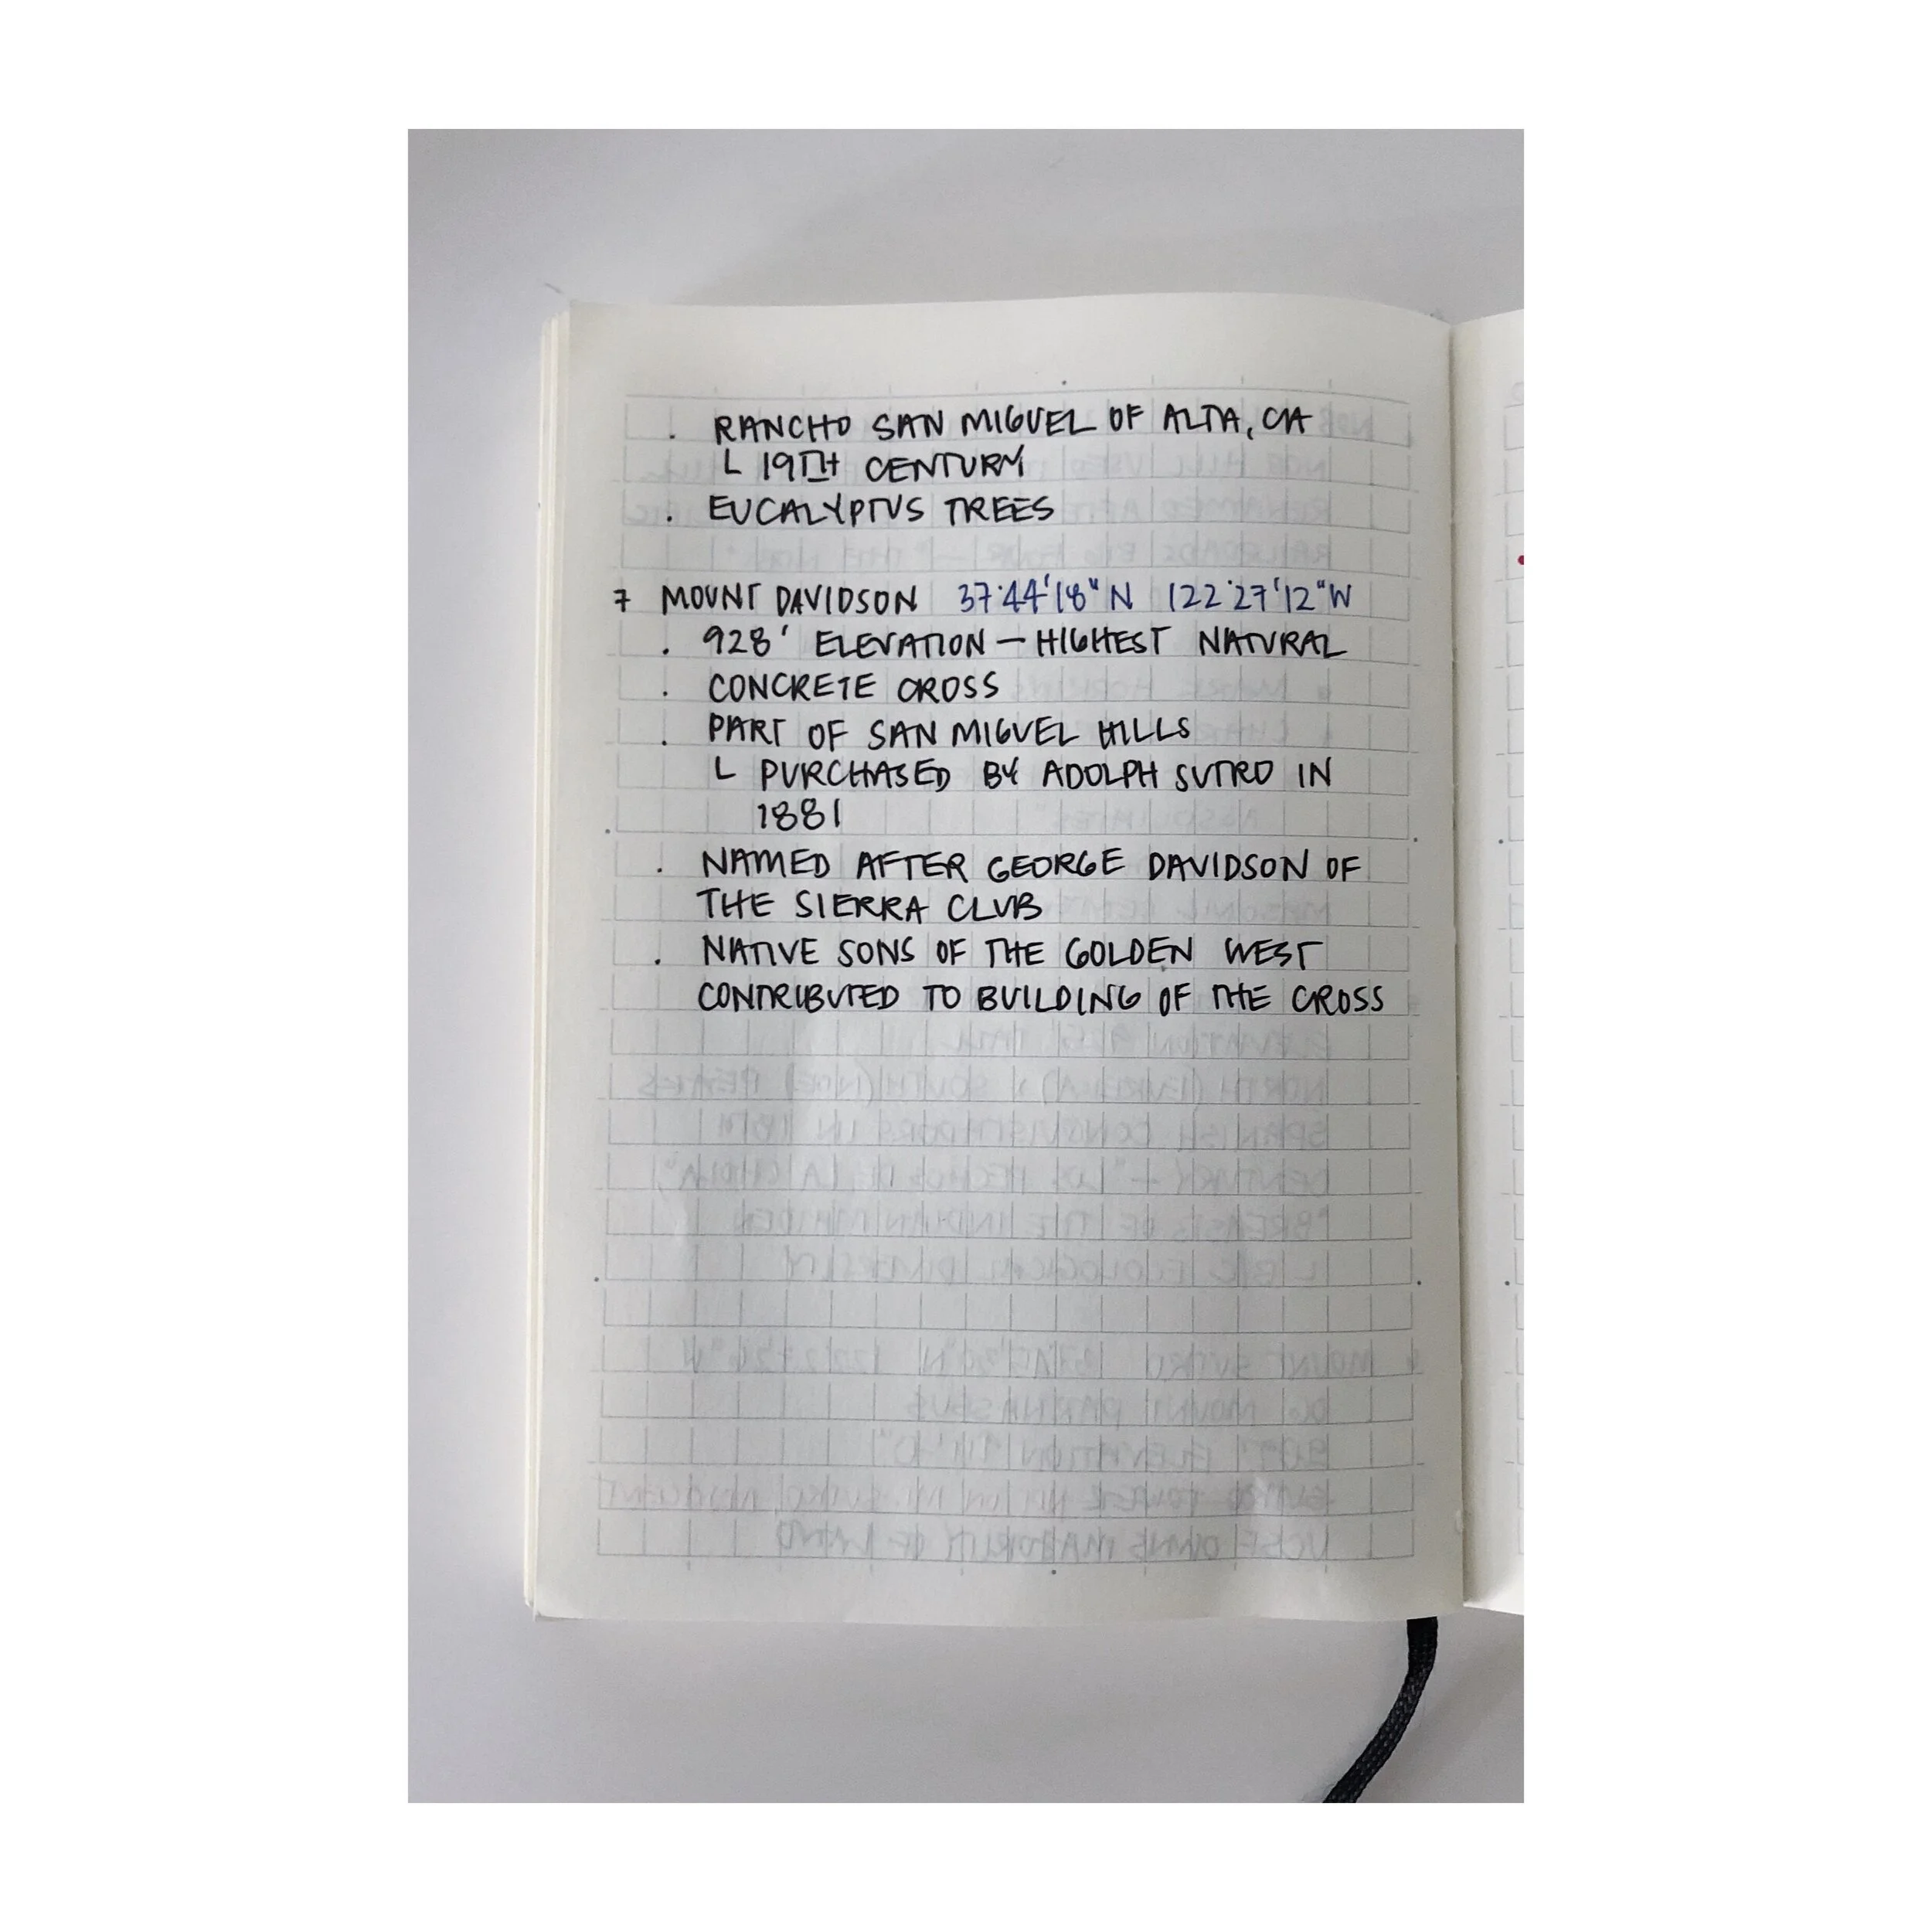 . RANCHO SAN MIGUEL OF ALTA, CA
L 19TH CENTURY
. EUCALYPTUS TREES
7 MOUNT DAVIDSON 37°44'18"N 122°27'12"W
. 928' ELEVATION — HIGHEST NATURAL
. CONCRETE CROSS
. PART OF SAN MIGUEL HILLS
L PURCHASED BY ADOLPH SUTRO IN
1881
. NAMED AFTER GEORGE DAVIDSON OF
THE SIERRA CLUB
. NATIVE SONS OF THE GOLDEN WEST
CONTRIBUTED TO BUILDING OF THE CROSS